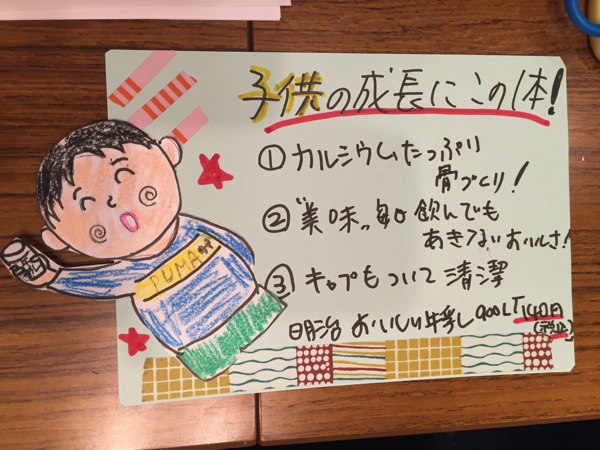 子供の成長にこの1本!
①カルシウムたっぷり
骨づくり!
②"美味"毎日飲んでも
あきてないおいしさ!
③キャップもついて清潔
明治 おいしい牛乳 900LT 140円
(税込)
PUMA